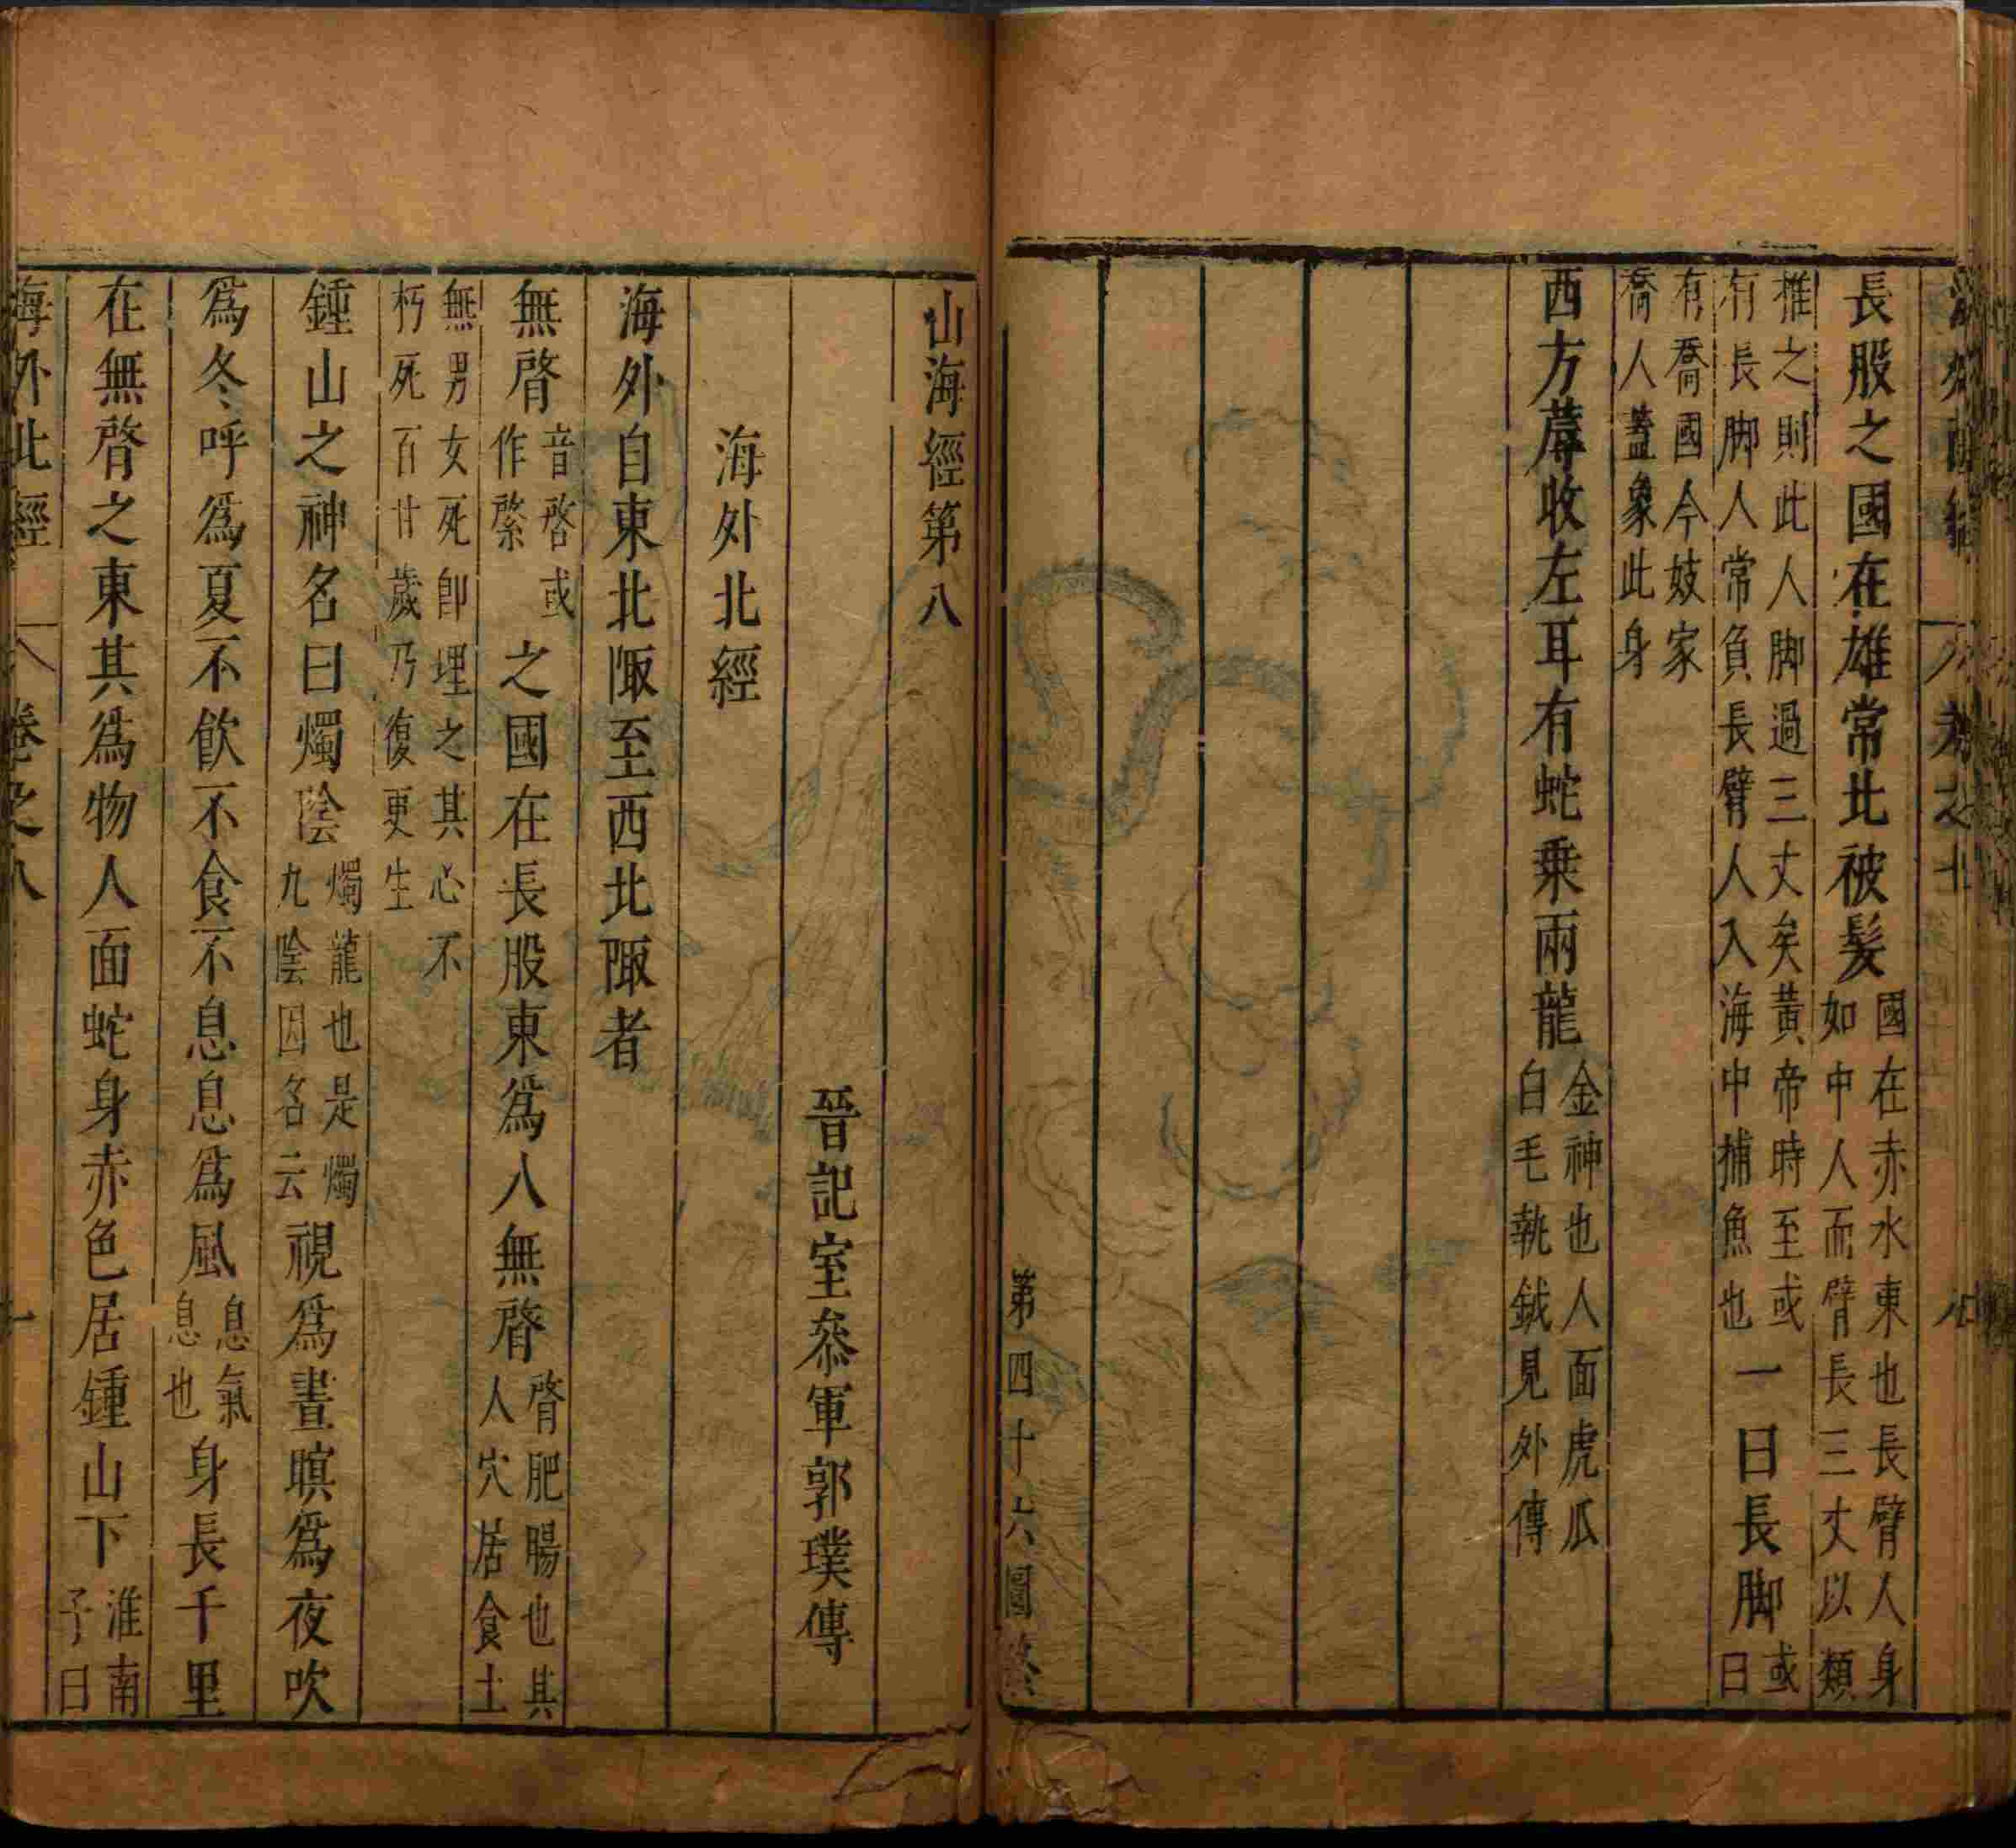 長股之國在雄常北被髮國在赤水東也長臂人身如中人而臂長三丈以類
推之則此人脚過三丈矣黃帝時至或有長脚人常負長臂人入海中捕魚也一曰長脚或曰
有喬國今妓家喬人蓋象此身
西方蓐收左耳有蛇乗兩龍金神也人面虎爪白毛執鉞見外傳
第四十六圖
山海經第八
晉記室叅軍郭璞傳
海外北經
海外自東北陬至西北陬者
無䏿音啓或作綮之國在長股東爲人無䏿䏿肥腸也其人穴居食土
無男女死即埋之其心不朽死百廿歲乃復更生
鍾山之神名曰燭陰燭龍也是燭九陰因名云視爲晝瞑爲夜吹
爲冬呼爲夏不飲不食不息息爲風息氣息也身長千里
在無䏿之東其爲物人面蛇身赤色居鍾山下淮南子曰
海外北經 卷之八 一